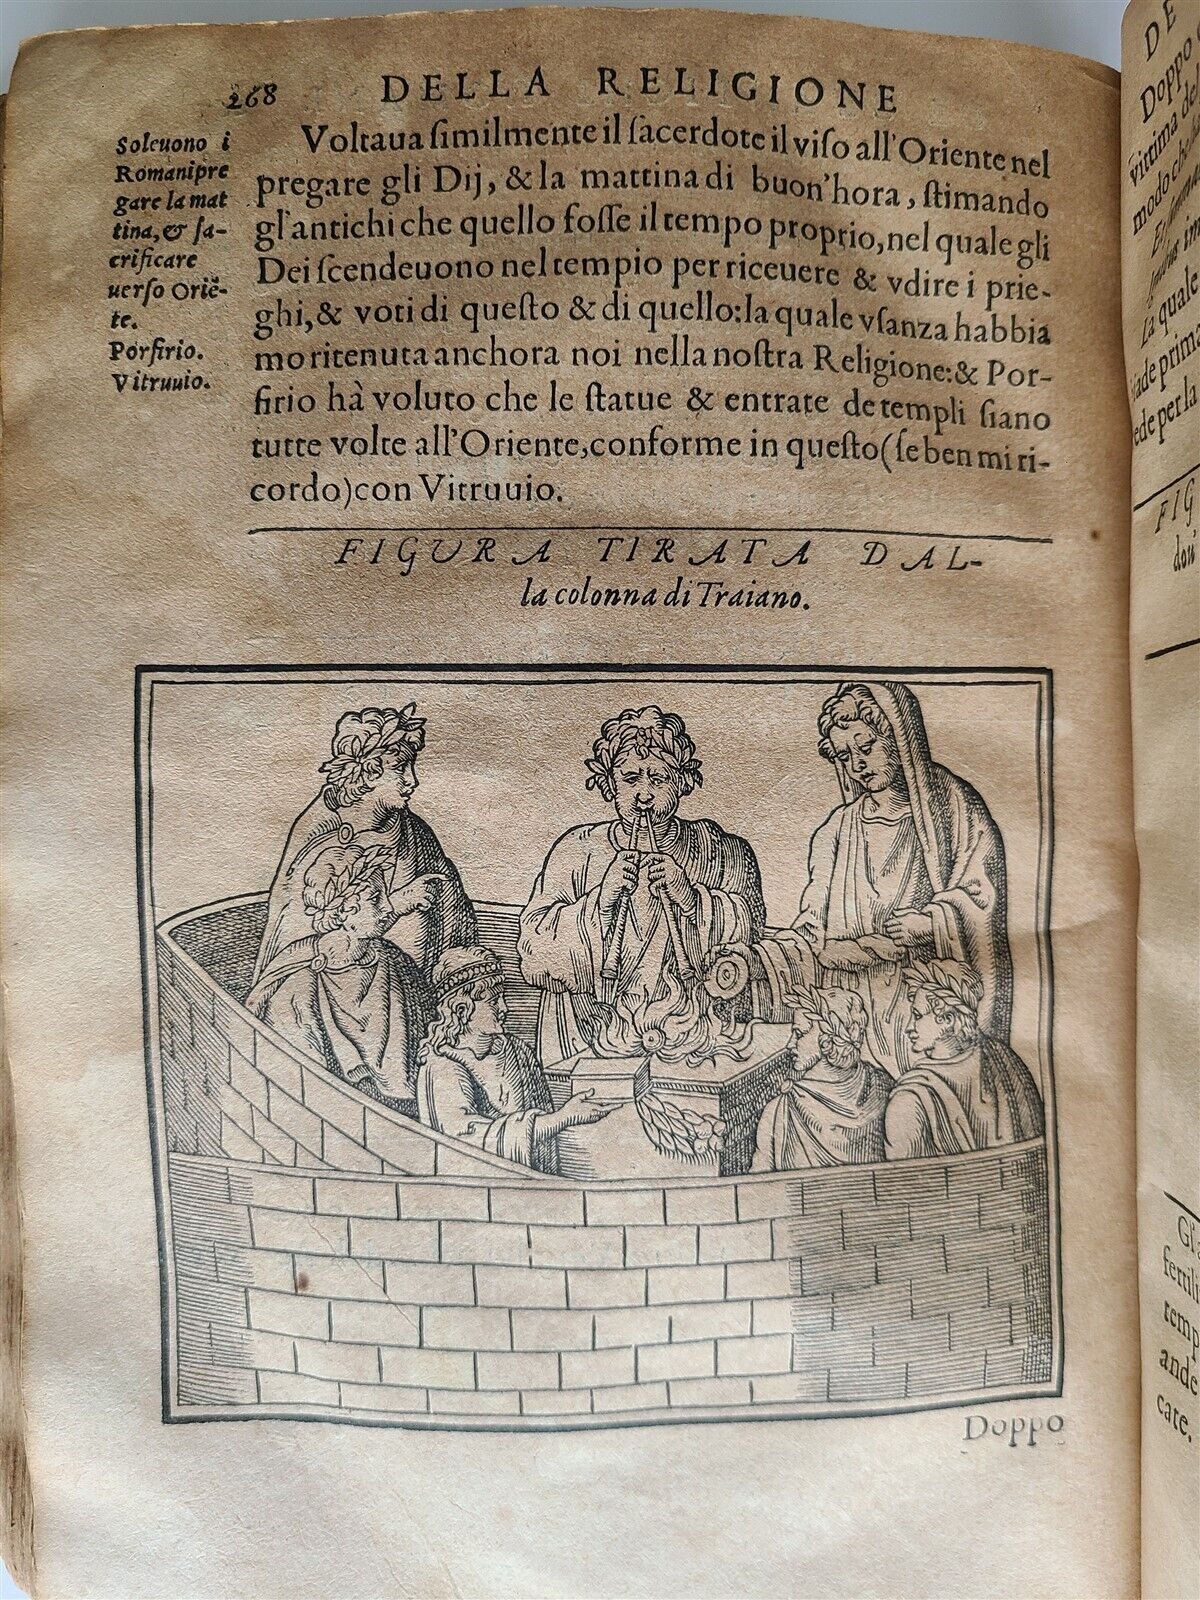 268 DELLA RELIGIONE
Soleuono i
Romani pre
gare la mat
tina, & sa-
crificare
uerso Oriē-
te.
Porfirio.
Vitruuio.
Voltaua ſimilmente il ſacerdote il viſo all'Oriente nel
pregare gli Dij, & la mattina di buon'hora, ſtimando
gl'antichi che quello foſſe il tempo proprio, nel quale gli
Dei ſcendeuono nel tempio per riceuere & vdire i prie-
ghi, & voti di queſto & di quello: la quale vſanza habbia
mo ritenuta anchora noi nella noſtra Religione: & Por-
firio hà voluto che le ſtatue & entrate de templi ſiano
tutte volte all'Oriente, conforme in queſto (ſe ben mi ri-
cordo) con Vitruuio.
FIGURA TIRATA DAL-
la colonna di Traiano.
Doppo
DE
Doppo
vittima del
modo che
La quale
ede per la
FIG
don
fertili
temp
ande
cate.